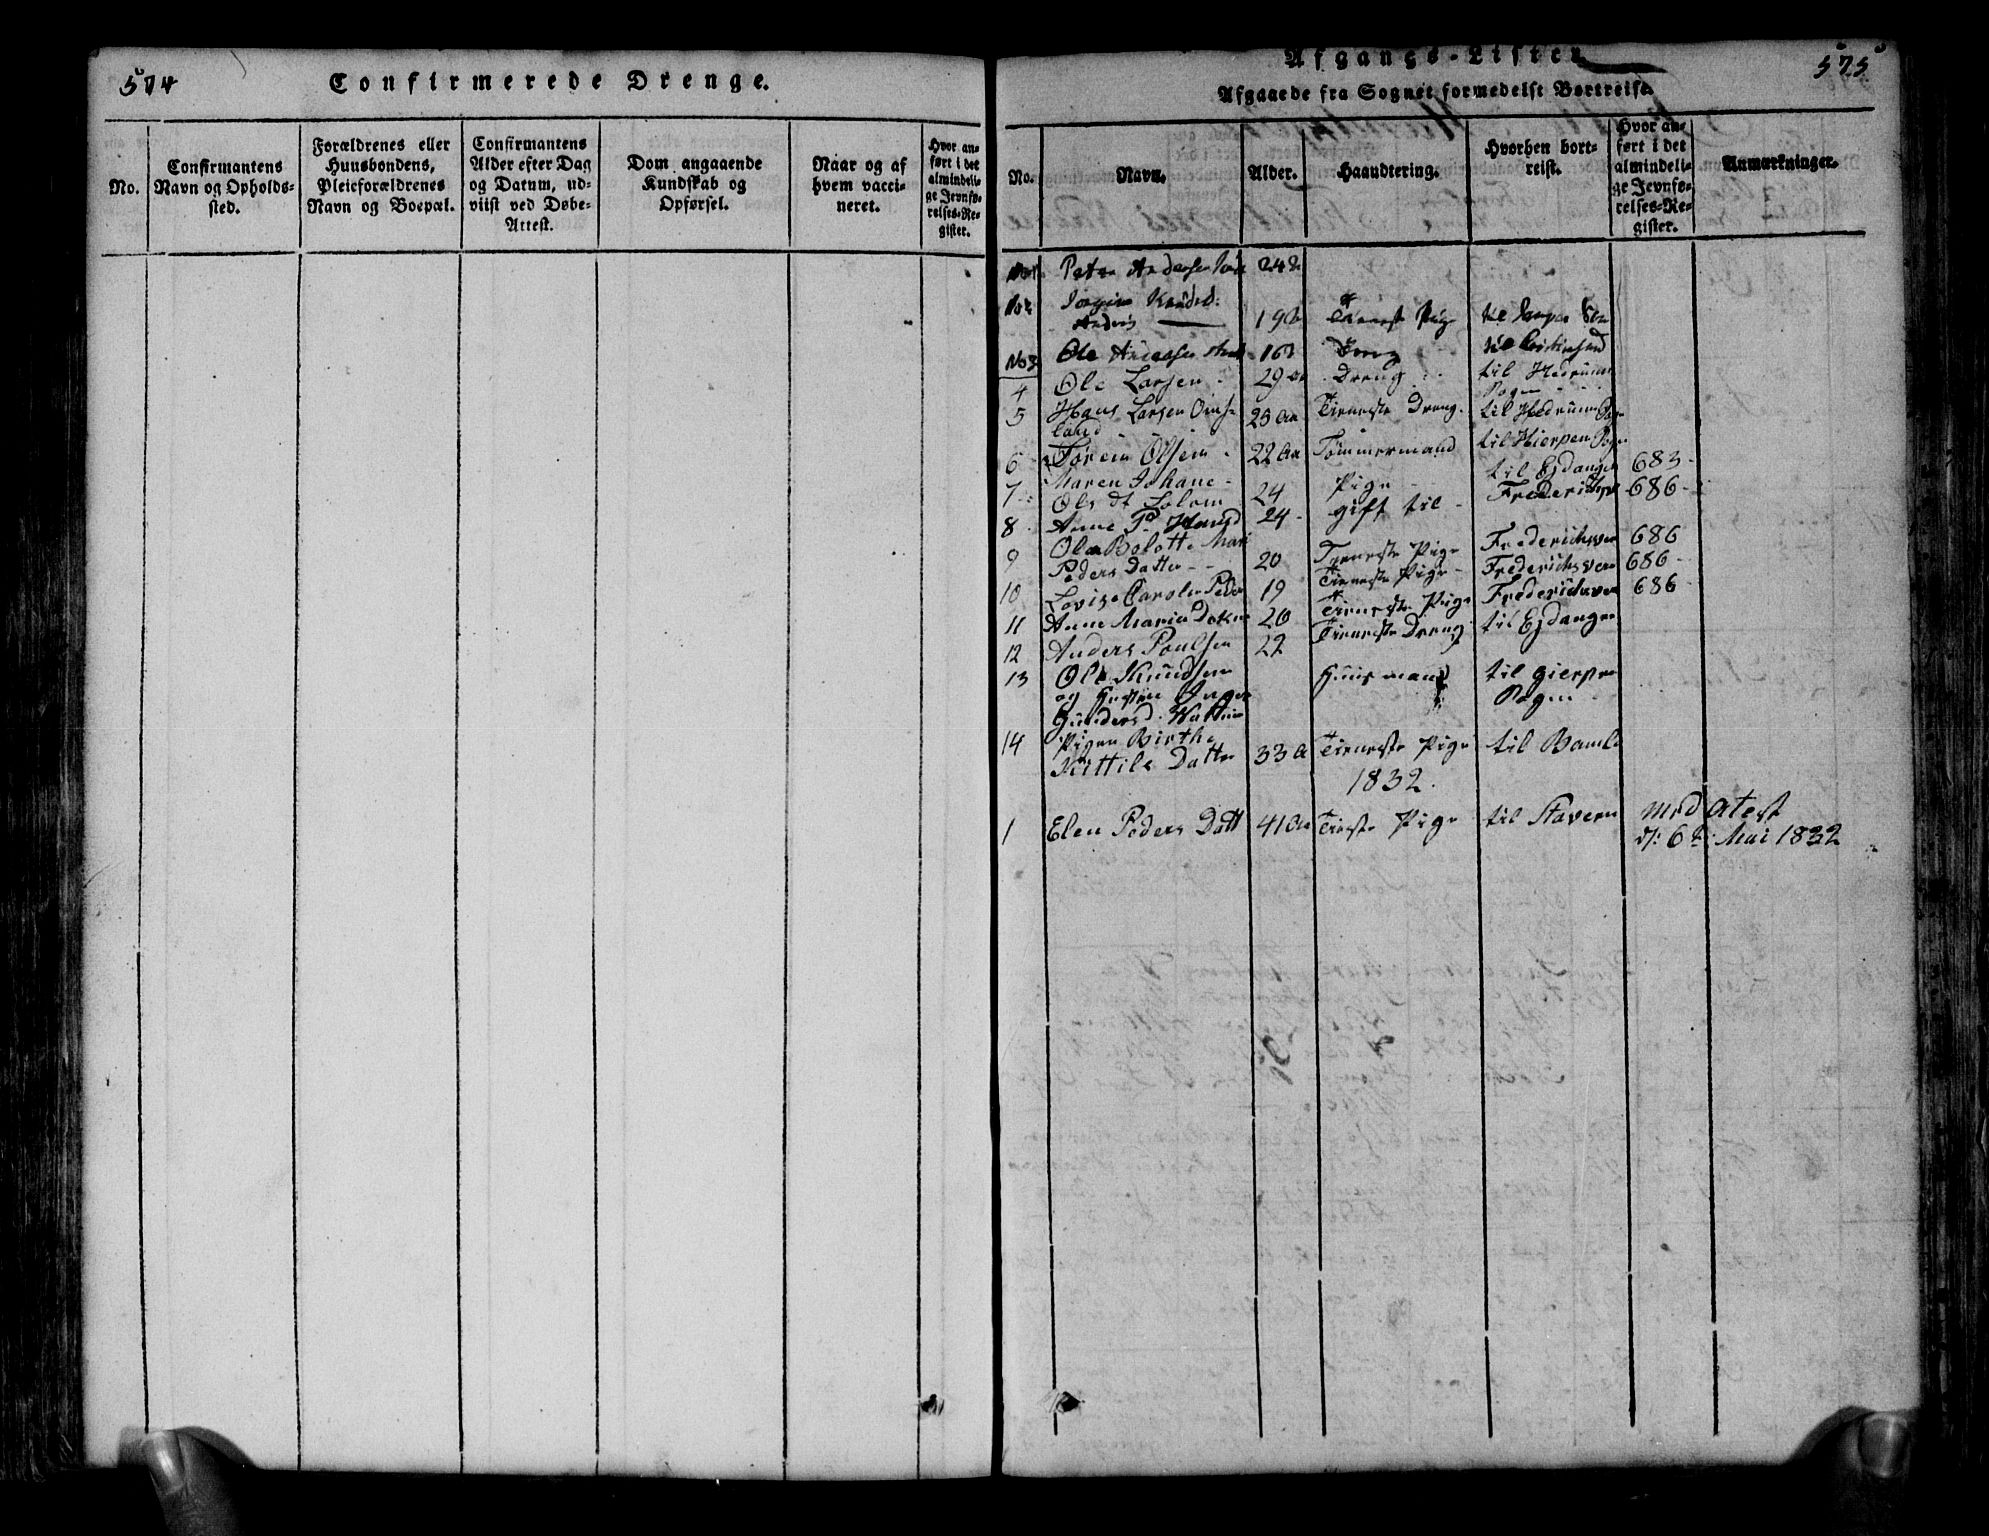 574
Confirmerede Drenge.
No.
Confirmantens
Navn og Opholds-
sted.
Forældrenes eller
Huusbondens,
Pleieforældrenes
Navn og Boepæl.
Confirmantens
Alder efter Dag
og Datum, ud-
viist ved Døbe-
Attest.
Dom angaaende
Kundskab og
Opførsel.
Naar og af
hvem vacci-
neret.
Hvor an-
ført i det
almindeli-
ge Jevnfø-
relses-Re-
gister.
575
Afgangs-Lister.
Afgaaede fra Sognet formedelst Bortreise.
No.
Navn.
Alder.
Haandtering.
Hvorhen bort-
reist.
Hvor an-
ført i det
almindeli-
ge Jevnfø-
relses-Re-
gister.
Anmærkninger.
Peter Andersen 24
19 Tieneste Pige
No 3 Ole 16 Dreng
4 Ole Larsen 29 Dreng til Hedrum
Sogn
5 Hans Larsen 25 Aar Tieneste Dreng til Hedrum Sogn
land
6 Olsen 22 Aar Tømmermand til Hierpen Sogn
7 Maren Johane Pige til Ejdanger 683
Ols dt 24
8 Anne 24 gift til Frederichsv 686
9 Mari
Peders Datter 20 Tieneste Pige Frederichsvern 686
10 Lovise Caroline Peder 19 Tieneste Pige Frederichsvern 686
11 Anne Maria 20 Tieneste Pige Frederichsvern 686
12 Anders Poulsen 22 Tieneste Dreng til Ejdanger
13 Ole Knudsen Huusmand til Gierpen
og Hustru Inger Sogn
Gunders d.
14 Pigen Birthe
Kittils Datter 33 A Tieneste Pige til Bamle
1832.
1 Elen Peders Datt 41 Aar Tieneste Pige til Stavern med Atest
d: 6te Mai 1832